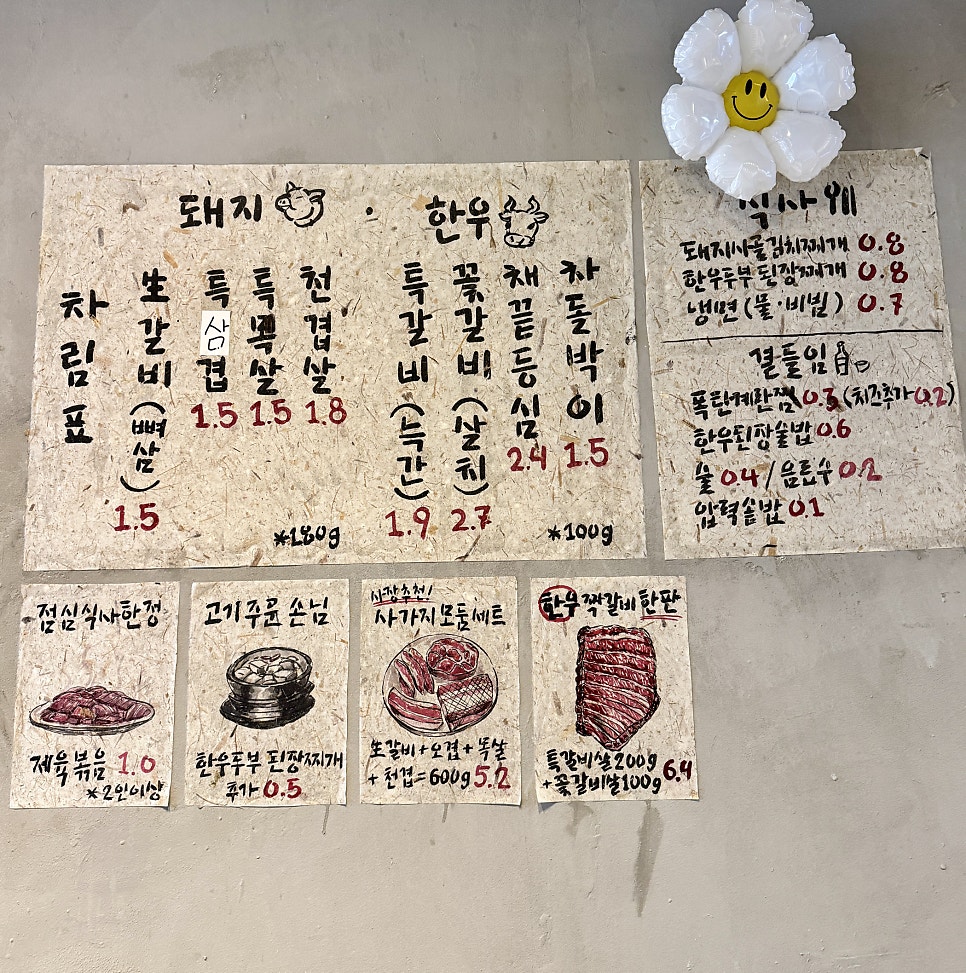 돼지
한우
차림표
生갈비(뼈삼) 1.5
특삼겹 1.5
특목살 1.5
천겹살 1.8
*180g
특갈비(늑간) 1.9
꽃갈비(살치) 2.7
채끝등심 2.4
차돌박이 1.5
*100g
식사류
돼지사골김치찌개 0.8
한우두부된장찌개 0.8
냉면(물·비빔) 0.7
곁들임
폭탄계란찜 0.3 (치즈추가 0.2)
한우된장술밥 0.6
술 0.4 / 음료수 0.2
압력솥밥 0.1
점심식사한정
제육볶음 1.0
*2인이상
고기 주문 손님
한우두부 된장찌개
추가 0.5
사장추천!
사가지모둠세트
生갈비+오겹+목살
+천겹=600g 5.2
한우 짝갈비 한판
특갈비살 200g
+꽃갈비살100g 6.4